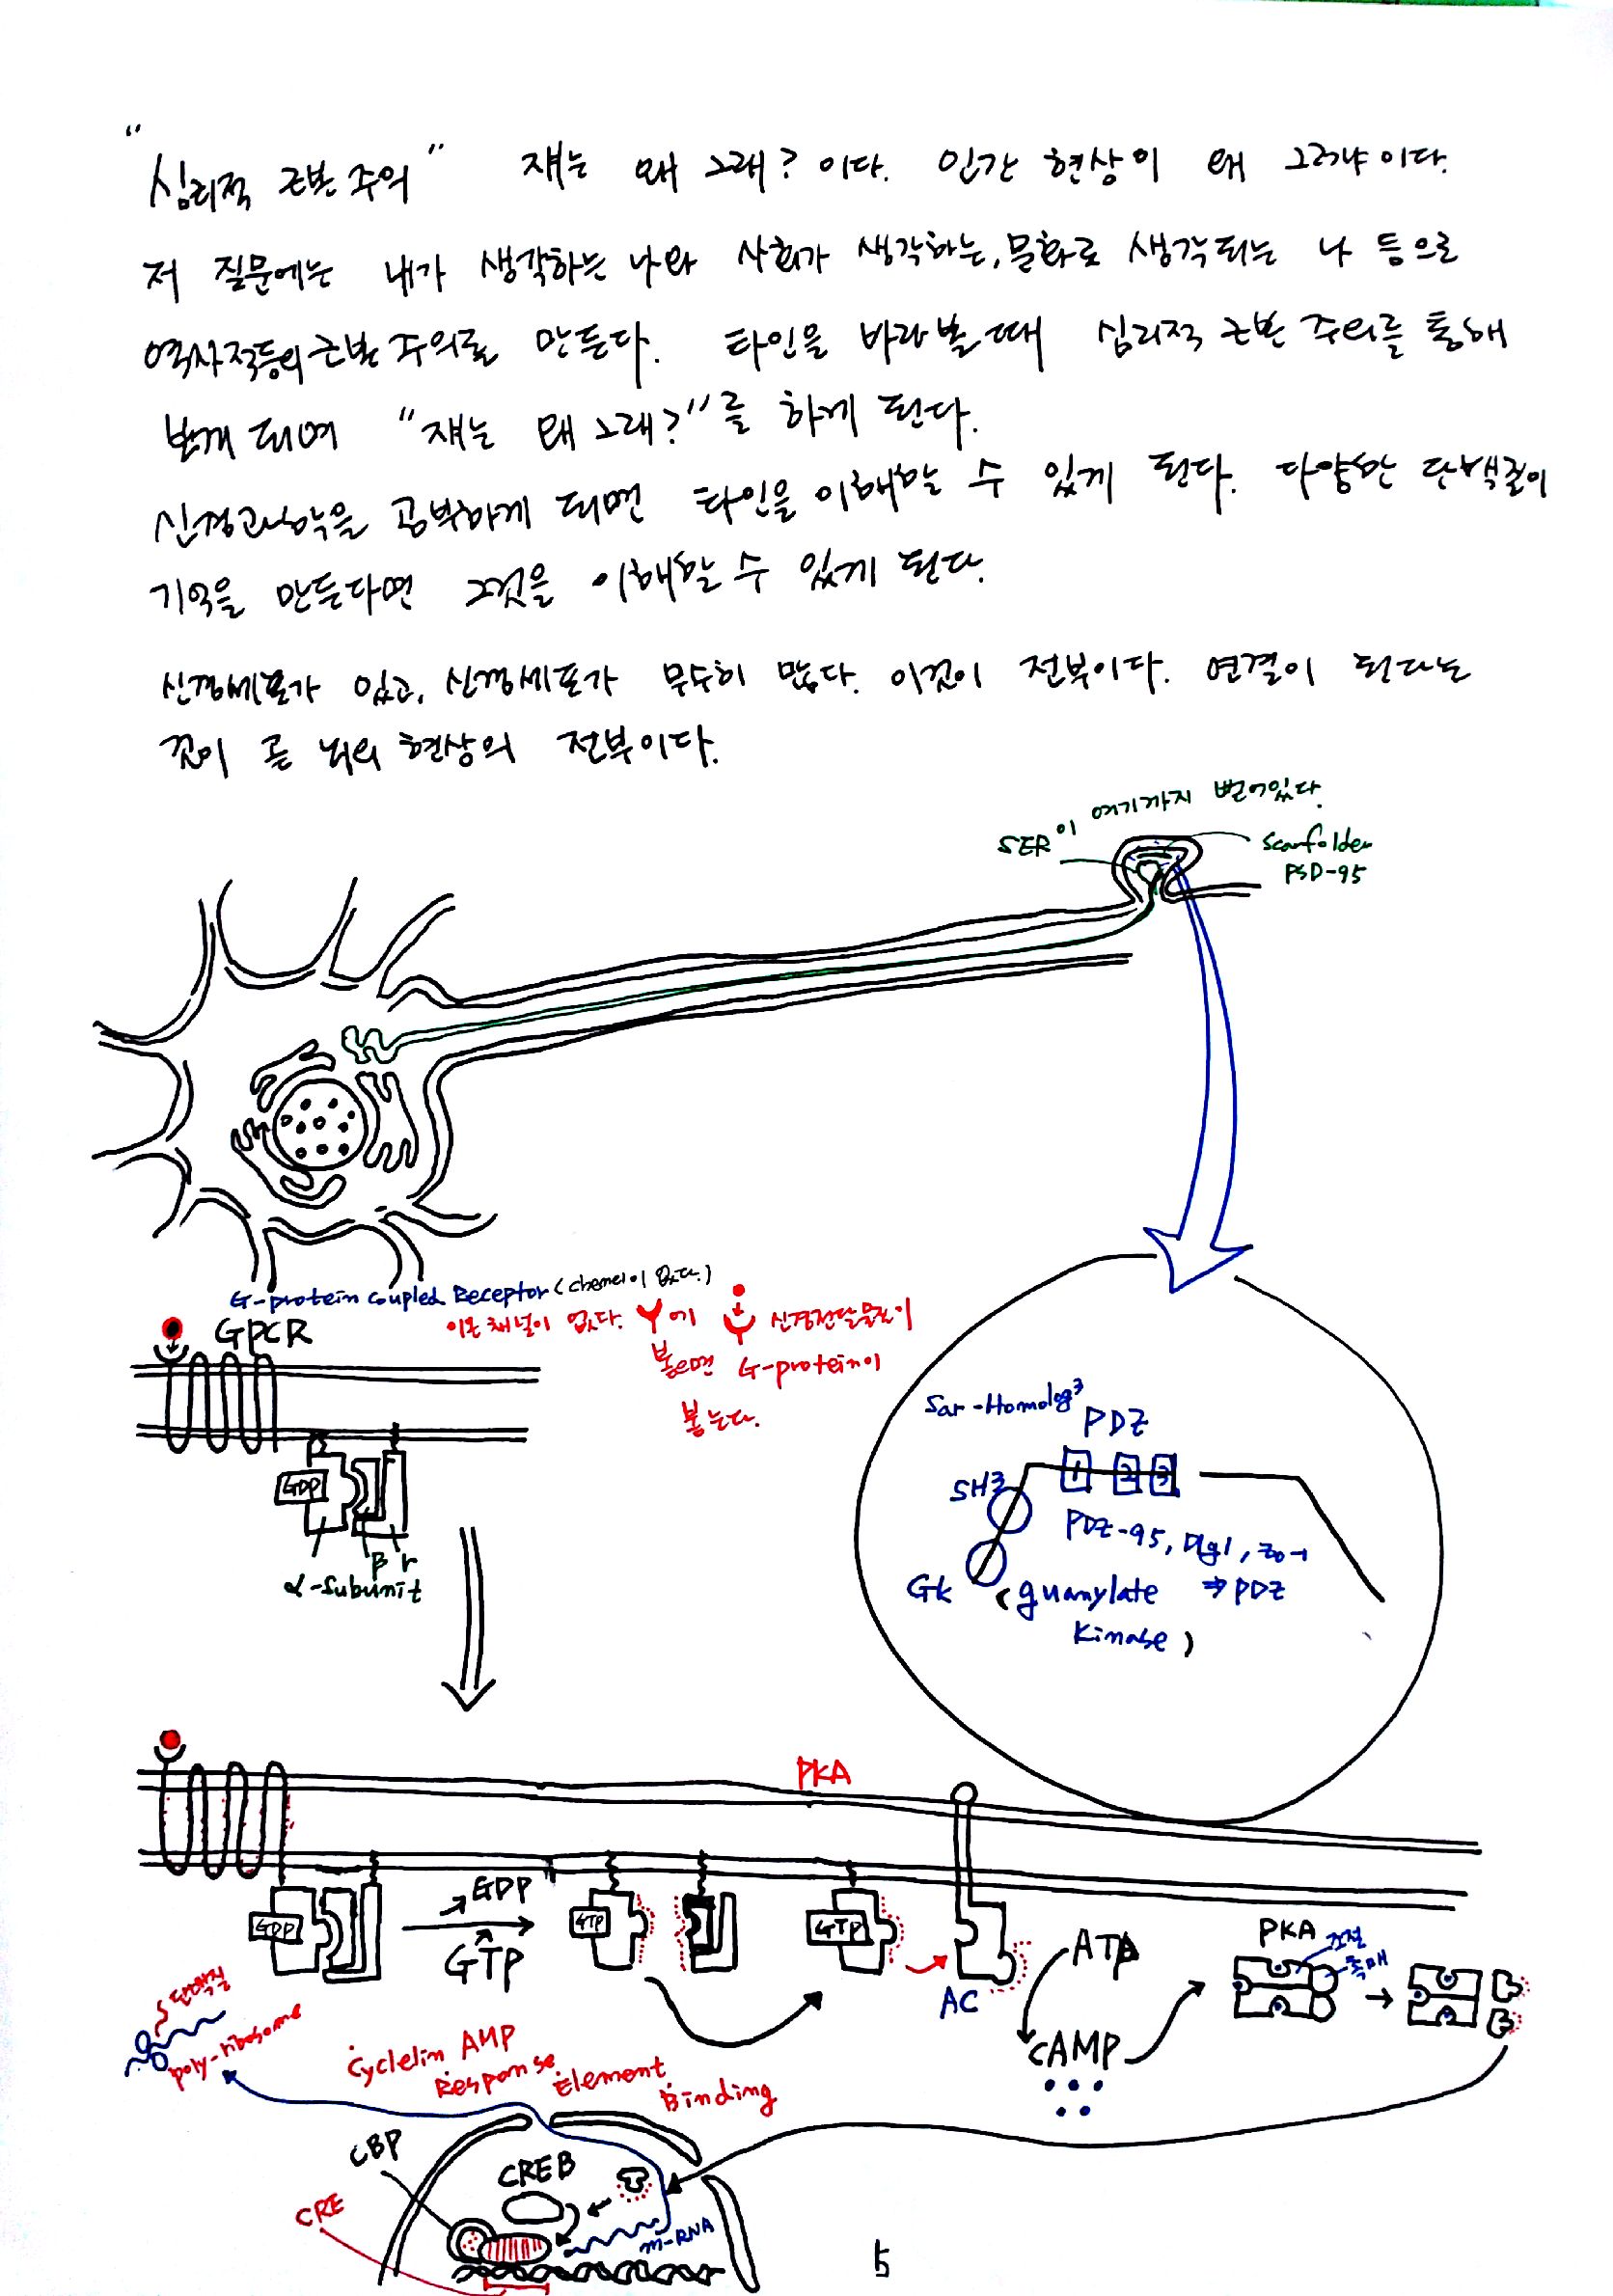 "심리적 근본주의" 쟤는 왜 그래? 이다. 인간 현상이 왜 그러냐이다.
저 질문에는 내가 생각하는 나와 사회가 생각하는, 문화로 생각되는 나 등으로
역사적등의 근본주의로 만든다. 타인을 바라볼때 심리적 근본주의를 통해
보게 되며 "쟤는 왜 그래?"를 하게 된다.
신경과학을 공부하게 되면 타인을 이해할 수 있게 된다. 다양한 단백질이
기억을 만든다면 그것을 이해할 수 있게 된다.
신경세포가 있고, 신경세포가 무수히 많다. 이것이 전부이다. 연결이 된다는
것이 곧 뇌의 현상의 전부이다.
SER이 여기까지 뻗어있다.
Scanfolder
PSD-95
G-protein coupled Receptor (chenel이 없다.)
이온채널이 없다. Y에 신경전달물질이
붙으면 G-protein이
붙는다.
GPCR
GDP
β r
α-subunit
Sar-Homolog3
PDZ
1 2 3
SH3
PDZ-95, Dlg1, zo-1
⇒ PDZ
GK (guanylate
kinase)
PKA
GDP
GDP
GTP
GTP
GTP
AC
ATP
cAMP
PKA
조절
촉매
단백질
poly-ribosome
Cyclelin AMP
Response Element
Binding
CBP
CREB
CRE
m-RNA
5